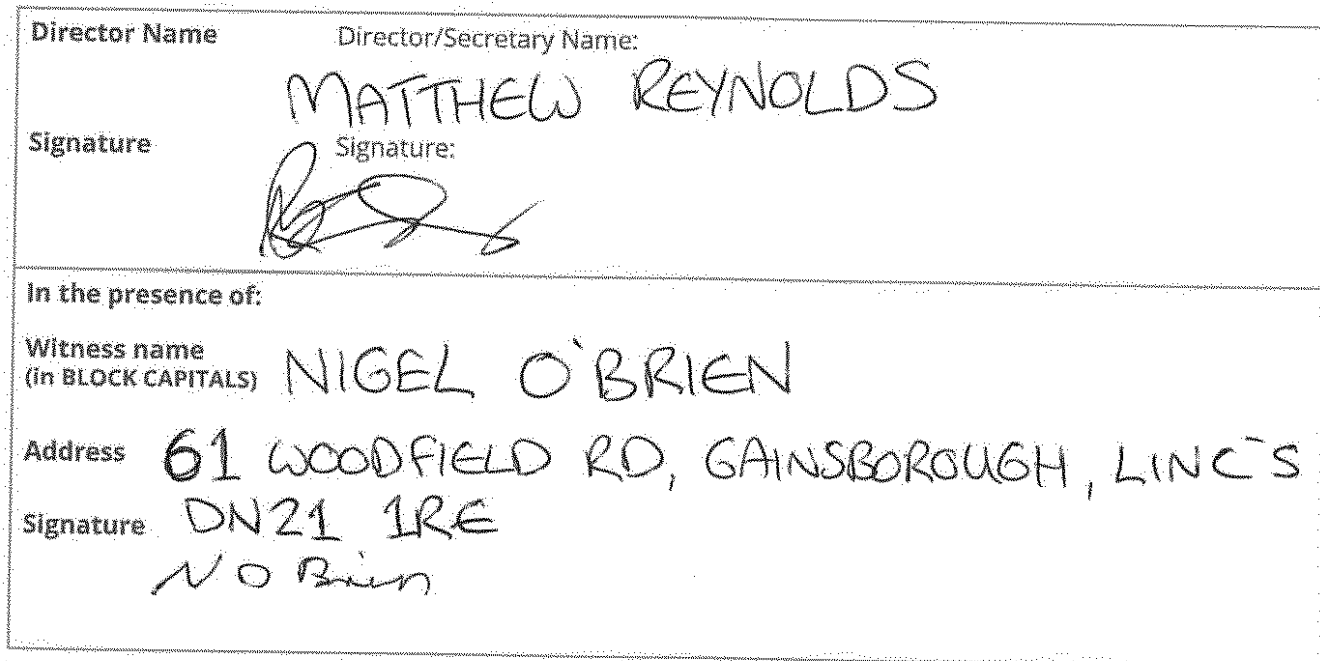 Director Name Director/Secretary Name:
MATTHEW REYNOLDS
Signature Signature:
In the presence of:
Witness name
(in BLOCK CAPITALS) NIGEL O'BRIEN
Address 61 WOODFIELD RD, GAINSBOROUGH, LINC'S
Signature DN21 1RE
N O Brien